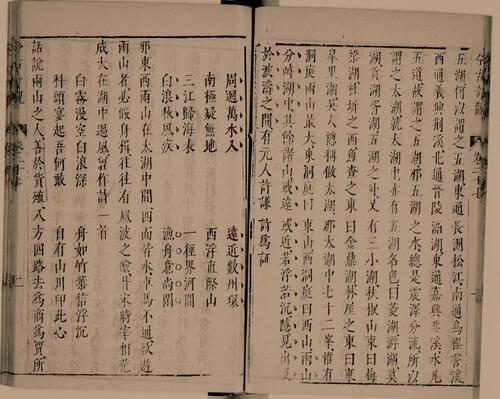 五湖何以謂之五湖東通長洲松江南通烏程霅溪
西通義興荆溪北通晉陵滆湖東通嘉興韭溪水凡
五道故謂之五湖那五湖之水總是震澤分流所以
謂之太湖就太湖中亦有五湖名色曰菱湖游湖莫
湖貢湖胥湖五湖之外又有三小湖扶椒山東曰梅
梁湖杜圻之西魚查之東曰金鼎湖林屋之東曰東
皋里湖吳人總稱做太湖那太湖中七十二峯惟有
洞庭兩山最大東洞庭曰東山西洞庭曰西山兩山
分峙湖中其餘諸山或遠或近若浮若沉隱見出沒
於波濤之間有元人許謙詩爲証
周週萬水入 遠近數州環
南極疑無地 西浮直際山
三江歸海表 一徑界河間
白浪秋風疾 漁舟意尚閒
那東西兩山在太湖中間四面皆水車馬不通欲遊
兩山者必假舟楫往往有風波之險昔宋時宰相范
成大在湖中遇風曾作詩一首
白霧漫空白浪深 舟如竹葉信浮沉
科頭宴起吾何敢 自有山川印此心
話說兩山之人善於貨殖八方四路去爲商爲賈所